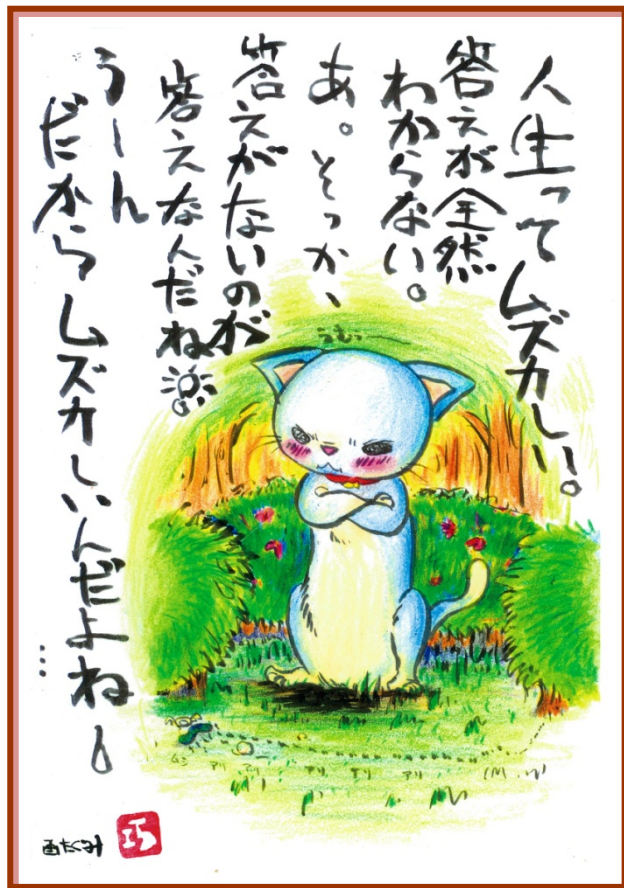 人生ってムズカしい。
答えが全然
わからない。
あ。そっか、
答えがないのが
答えなんだね
うーん
だからムズカしいんだよね…
うむぅ
ムシ アリ アリ アリ アリ アリ
画たくみ
巧